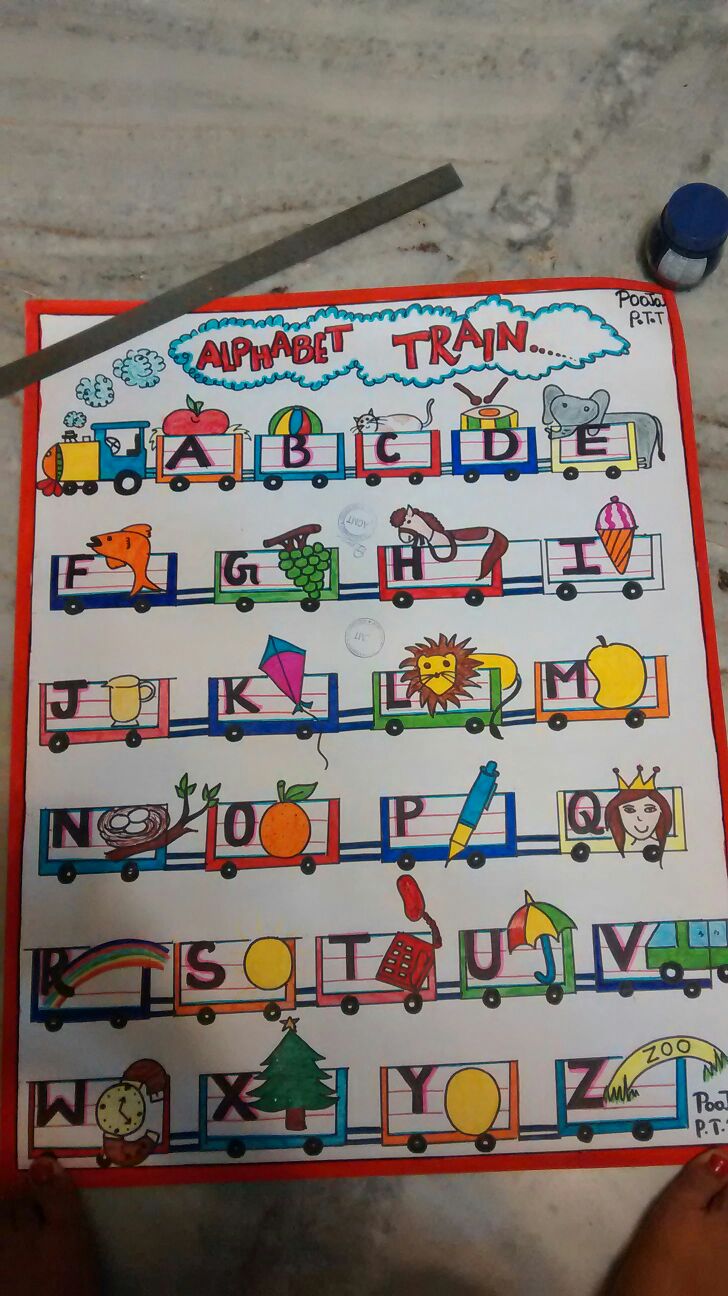 Pooja
P.T.T
ALPHABET TRAIN......
A B C D E
F G H I
J K L M
N O P Q
R S T U V
W X Y Z
ZOO